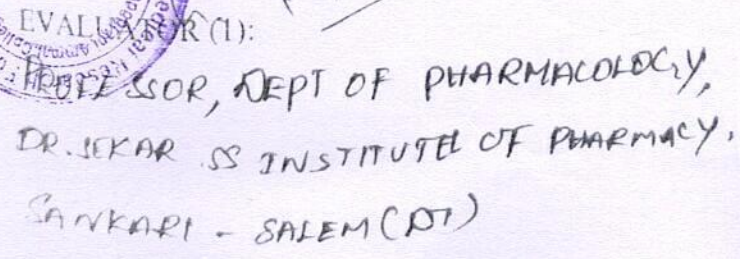 EVALUATOR (1):
PROFESSOR, DEPT OF PHARMACOLOGY,
DR. SEKAR SS INSTITUTE OF PHARMACY,
SANKARI - SALEM (DT)